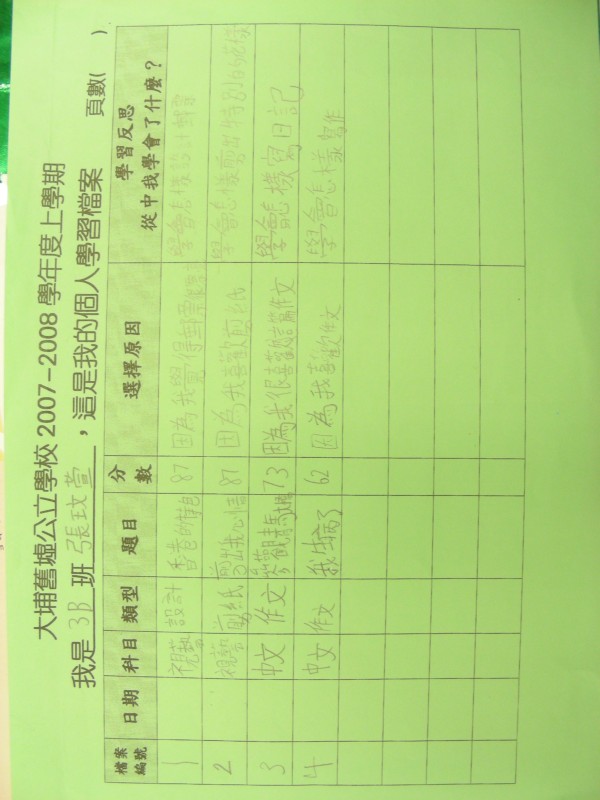 大埔舊墟公立學校 2007-2008 學年度上學期
我是 3B 班 張玟萱，這是我的個人學習檔案 頁數( )
檔案編號 日期 科目 類型 題目 分數 選擇原因 學習反思 從中我學會了什麼？
1 視藝 設計 香港的 87 因為我覺得 學會怎樣設計
2 視藝 剪紙 剪出我心情 87 因為我喜歡剪紙 學會怎樣剪出特
3 中文 作文 參觀青馬大橋 73 因為我很喜歡這篇作文 學會怎樣寫日記
4 中文 作文 我生病了 62 因為我喜歡作文 學會怎樣寫作